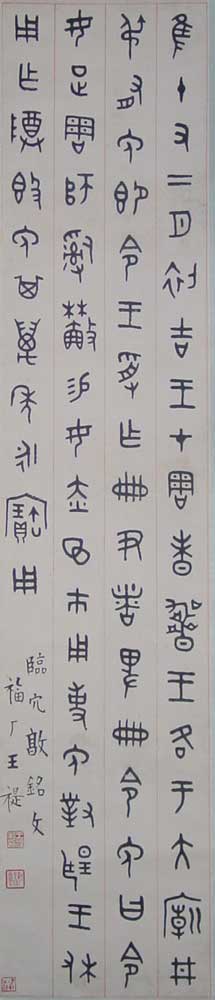 隹十又二月初吉王才周昧爽王各于大廟井
叔有免即令王受乍冊尹者俾冊令免曰令
女疋周師𤔲易女赤市用事免對揚王休
用乍尊簋免其萬年永寶用
臨宂敦銘文
福厂王禔